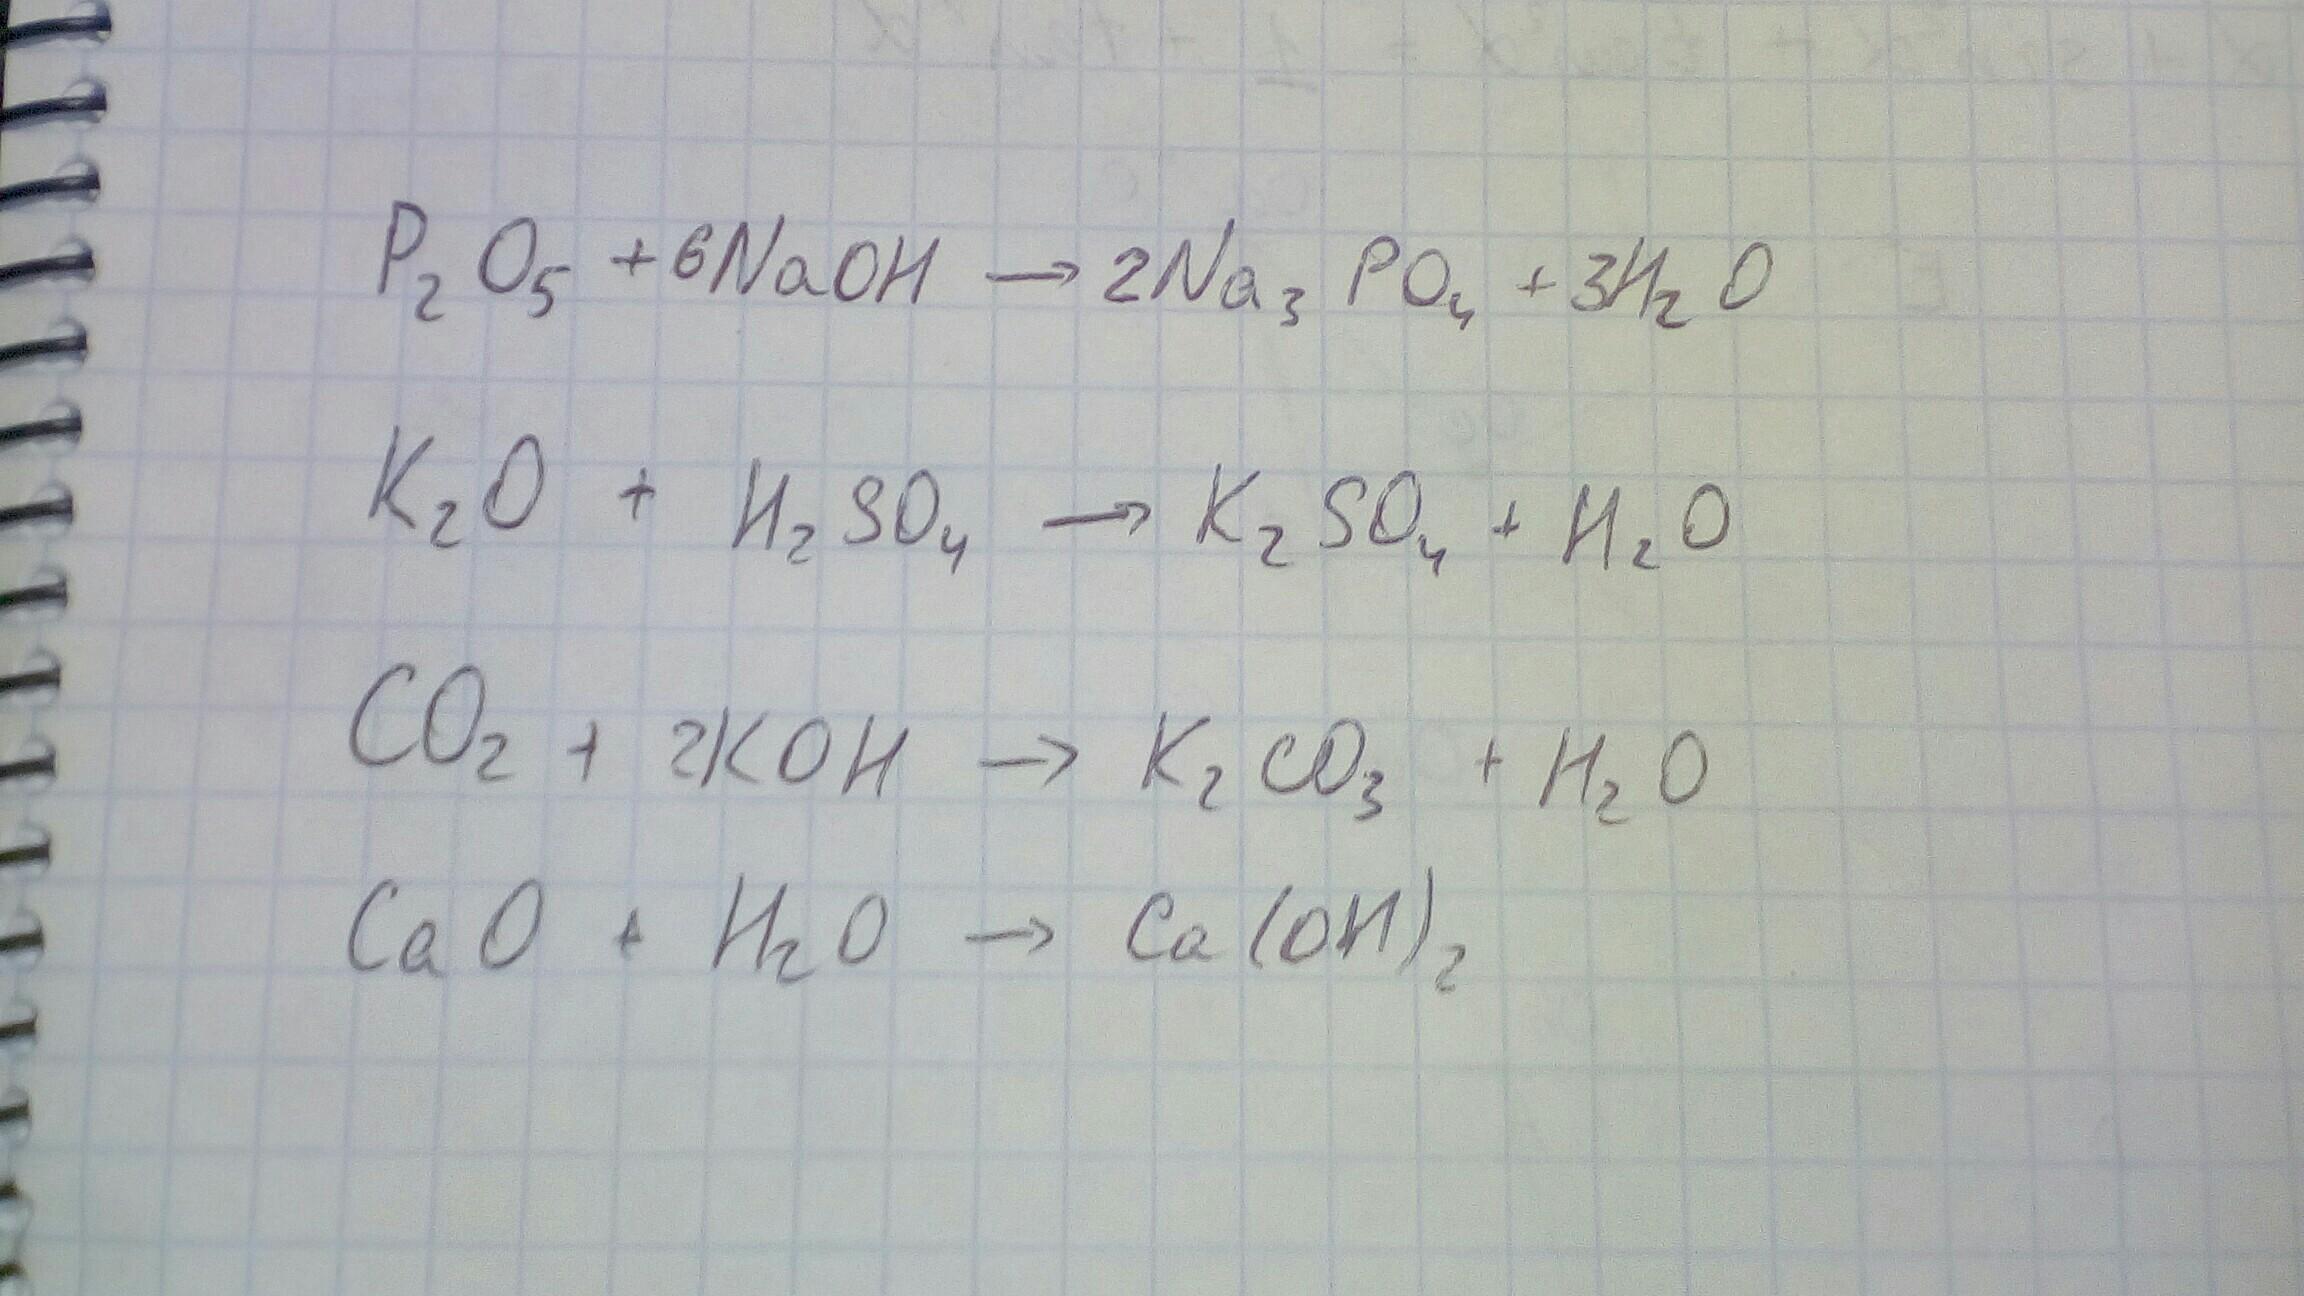 P₂O₅ + 6NaOH → 2Na₃PO₄ + 3H₂O
K₂O + H₂SO₄ → K₂SO₄ + H₂O
CO₂ + 2KOH → K₂CO₃ + H₂O
CaO + H₂O → Ca(OH)₂